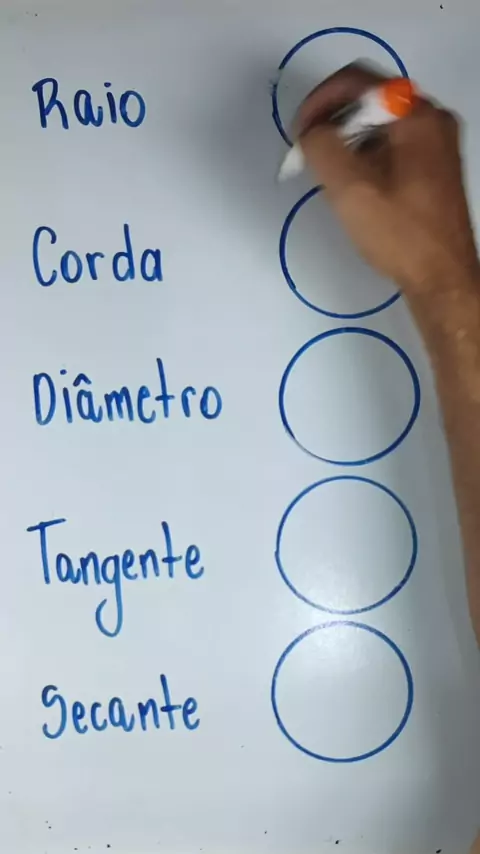 Raio
Corda
Diâmetro
Tangente
Secante